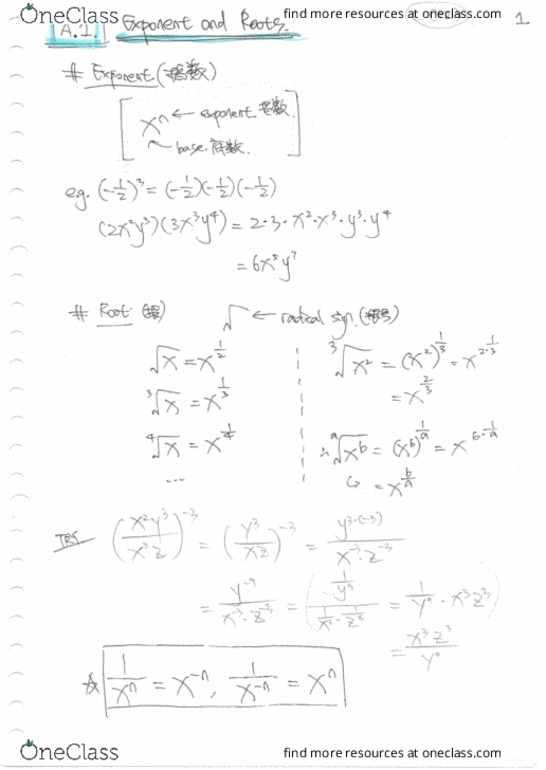 OneClass find more resources at oneclass.com 1
A.1. Exponent and Roots.
# Exponent (指數)
xⁿ ← exponent 指數.
base. 底數.
e.g. (-1/2)³ = (-1/2)(-1/2)(-1/2)
(2x²y³)(3x³y⁴) = 2·3·x²·x³·y³·y⁴
= 6x⁵y⁷
# Root (根) √ ← radical sign. (根号)
√x = x^(1/2) ³√x² = (x²)^(1/3) = x^(2·1/3)
³√x = x^(1/3) = x^(2/3)
⁴√x = x^(1/4) ∴ ᵃ√xᵇ = (xᵇ)^(1/a) = x^(b·1/a)
... ↳ = x^(b/a)
TRY (x²y³/x³z)⁻³ = (y³/xz)⁻³ = y^(3·(-3))/x⁻³·z⁻³
= y⁻⁹/x⁻³·z⁻³ = (1/y⁹)/(1/x³·1/z³) = 1/y⁹ · x³z³
= x³z³/y⁹
☆ 1/xⁿ = x⁻ⁿ, 1/x⁻ⁿ = xⁿ
OneClass find more resources at oneclass.com